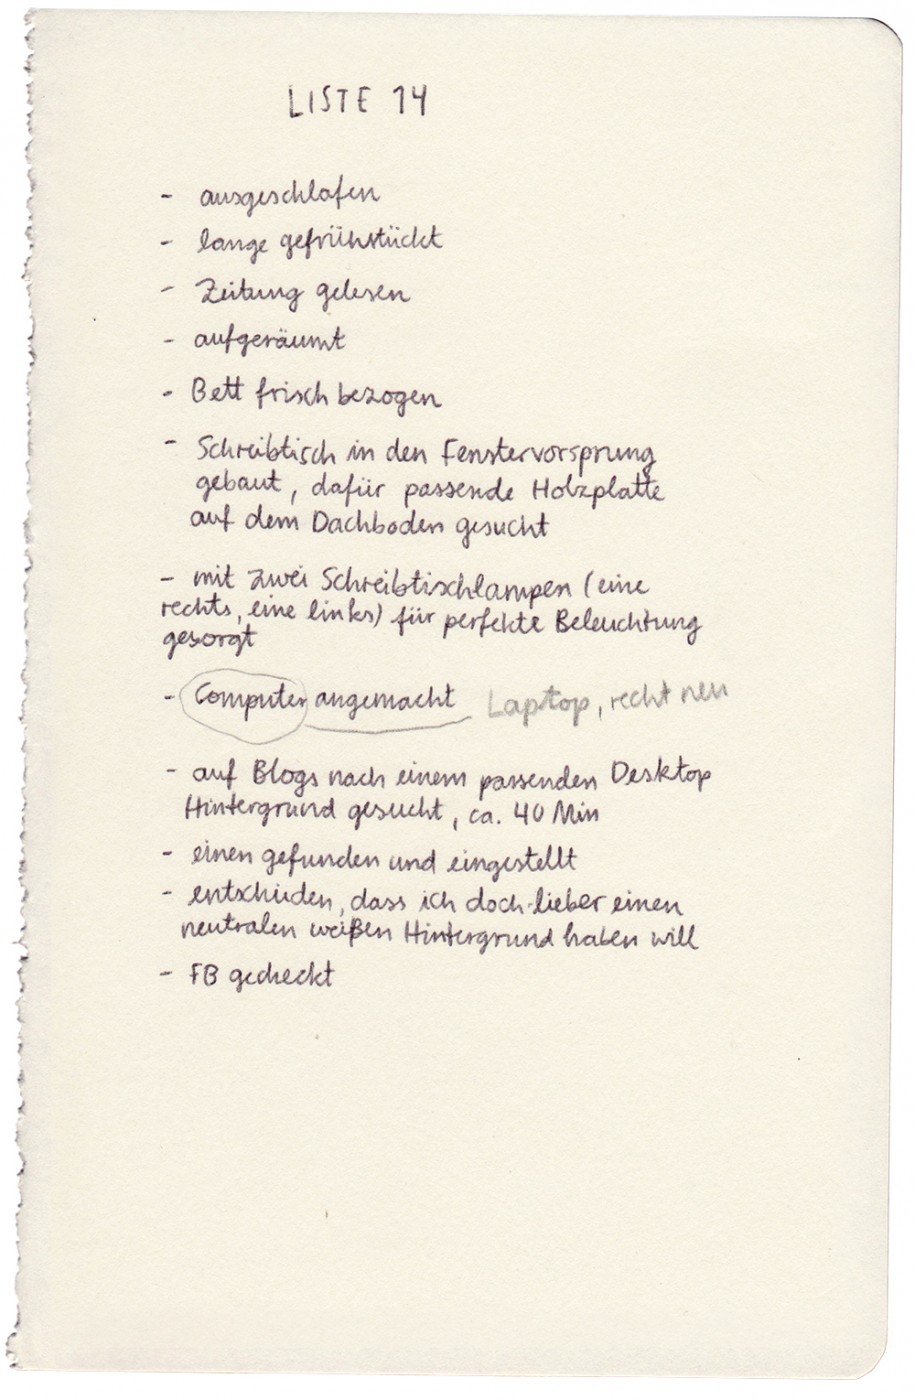 LISTE 14
- ausgeschlafen
- lange gefrühstückt
- Zeitung gelesen
- aufgeräumt
- Bett frisch bezogen
- Schreibtisch in den Fenstervorsprung
gebaut, dafür passende Holzplatte
auf dem Dachboden gesucht
- mit zwei Schreibtischlampen (eine
rechts, eine links) für perfekte Beleuchtung
gesorgt
- Computer angemacht Laptop, recht neu
- auf Blogs nach einem passenden Desktop
Hintergrund gesucht, ca. 40 Min
- einen gefunden und eingestellt
- entschieden, dass ich doch lieber einen
neutralen weißen Hintergrund haben will
- FB gecheckt